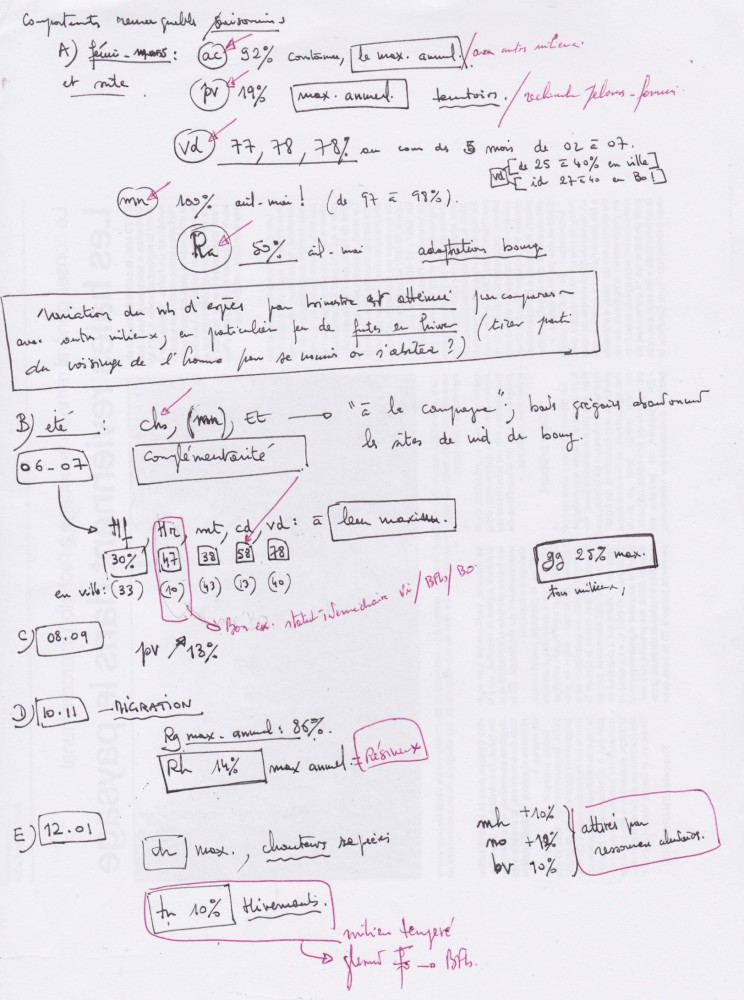 Comportements remarquables / saisonniers
A) février-mars : ac 92% continue, le max. annuel. / aux autres milieux.
et suite pv 19% max. annuel. territoires. / recherche
vd 77, 78, 78% au cours des 5 mois de 02 à 07.
vd [de 25 à 40% en ville]
[id 27 à 40 en Bo!]
mn 100% avil-mai ! (de 97 à 98%).
Ra 50% avil-mai adaptation bourg
Variation du nb d'espèces par trimestre est atténuée par comparaison
avec autres milieux, en particulier peu de fuites en hiver (tirer parti
du voisinage de l'homme pour se nourrir ou s'abriter ?)
B) été : cho, (mn), Et → "à la campagne";, grégaires abandonnent
06-07 complémentarité les sites de nid du bourg.
Hf, Hr, mt, cd, vd : à leur maximum.
30% 47 38 58 78 gg 25% max.
en ville : (33) (10) (43) (13) (40) tous milieux,
Bon ex. statut intermédiaire Vi / BFb / BO
C) 08.09 pv ↗ 13%
D) 10.11 - MIGRATION
Rg max. annuel : 86%.
Rh 14% max annuel. = Résineux
E) 12.01 mh +10%
ch max., chanteurs no +19% attirés par
bv 10% ressources
tn 10% Hivernants.
milieu tempéré
→ BFb.